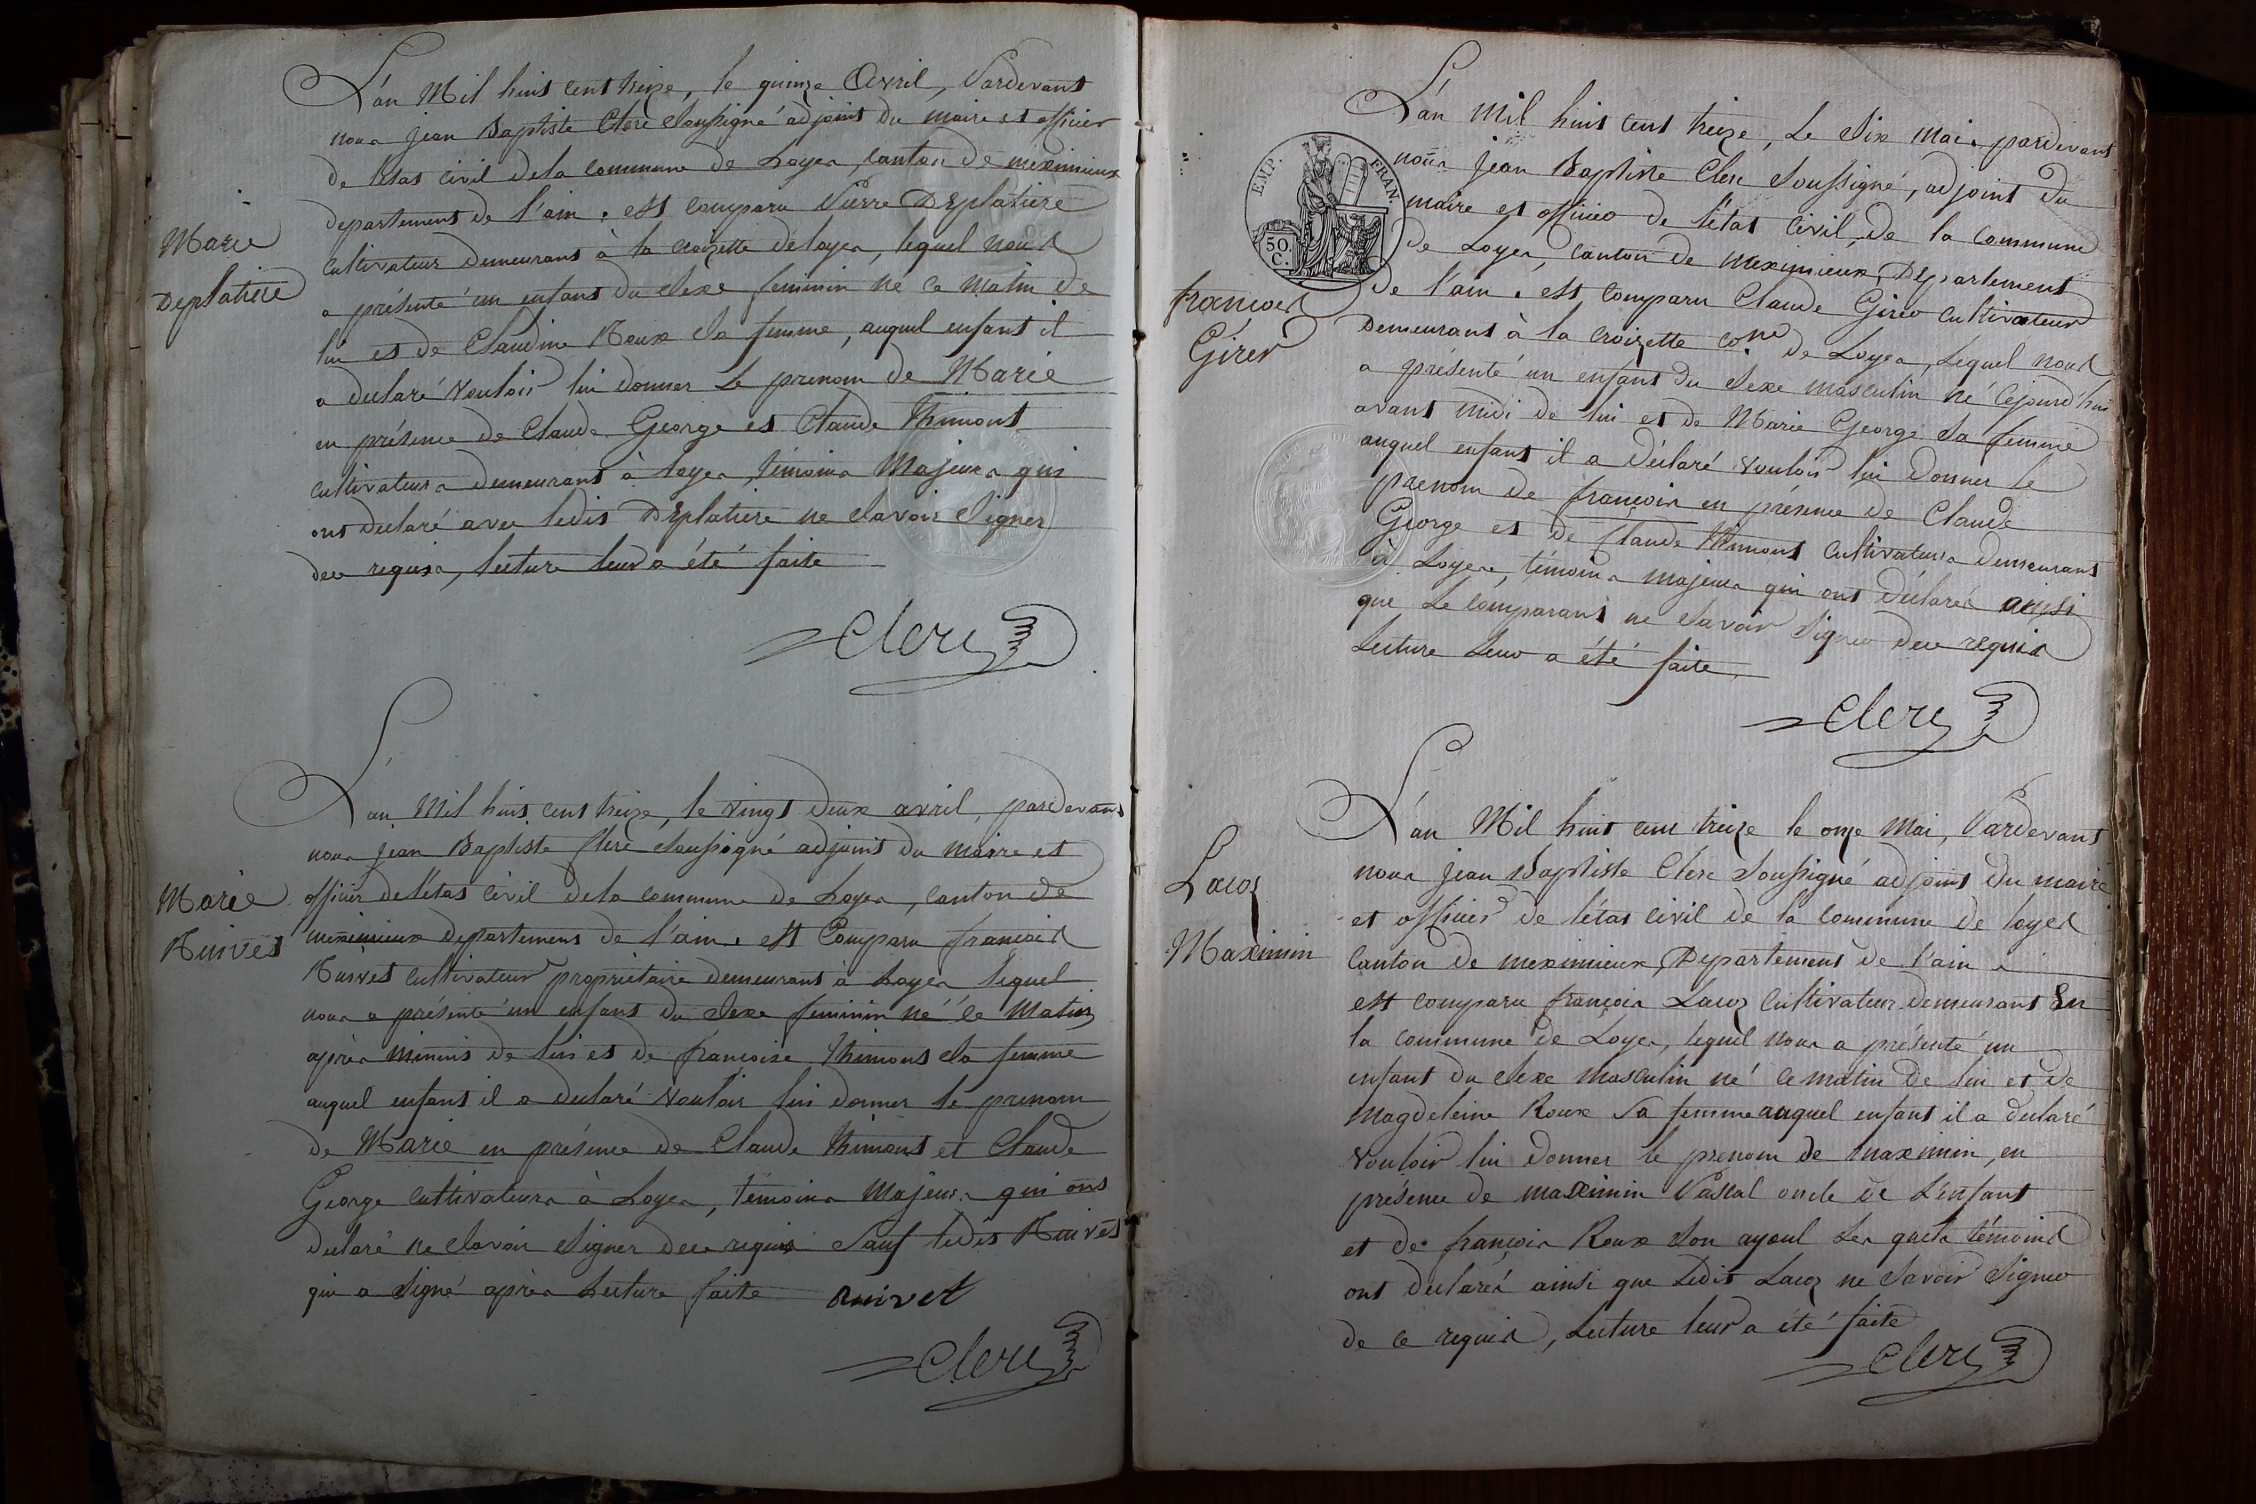 L'an Mil huit cent treize, le quinze Avril, Pardevant
nous jean Baptiste Clerc Soussigné adjoint du maire et officier
de l'état civil de la commune de Loyes, canton de meximieux
département de l'ain. est comparu Pierre Déplatière
Marie
cultivateur demeurant à la croizette de loyes, lequel nous
Déplatière
a présenté un enfant du sexe feminin né ce matin de
lui et de Claudine Roux sa femme, auquel enfant il
a déclaré vouloir lui donner le prenom de Marie
en présence de Claude George et Claude Thimont
cultivateurs demeurant à loyes, témoins Majeurs qui
ont déclaré avec ledit Déplatière ne savoir Signer
de ce requis, lecture leur a été faite
Clerc
L'an Mil huit cent treize, le vingt deux avril, pardevant
nous jean Baptiste Clerc Soussigné adjoint du maire et
Marie
officier de l'état civil de la commune de Loyes, canton de
Ruivet
meximieux département de l'ain. est Comparu françois
Ruivet cultivateur propriétaire demeurant à Loyes lequel
nous a présenté un enfant du sexe feminin né ce Matin
après minuit de lui et de françoise Thimont sa femme
auquel enfant il a déclaré vouloir lui donner le prenom
de Marie en présence de Claude Thimont et Claude
George cultivateurs à Loyes, témoins Majeurs qui ont
déclaré ne Savoir Signer de ce requis Sauf ledit Ruivet
qui a signé après lecture faite ruivet
Clerc
L'an Mil huit cent treize, Le Six Mai. pardevant
nous jean Baptiste Clerc Soussigné, adjoint du
EMP. FRAN.
50. C.
maire et officier de l'état Civil, de la commune
de Loyes, canton de meximieux, Département
françois
de l'ain. est comparu Claude Girer cultivateur
Girer
demeurant à la croizette cone de Loyes, lequel nous
a présenté un enfant du sexe masculin né cejourd'hui
avant midi de lui et de Marie George sa femme
auquel enfant il a déclaré vouloir lui donner le
prenom de françois en présence de Claude
George et de Claude Thimont cultivateurs demeurant
à Loyes, témoins majeurs qui ont déclarés ainsi
que le comparant ne Savoir Signer de ce requis
lecture leur a été faite
Clerc
L'an Mil huit cent treize le onze Mai, Pardevant
Lacoz
nous jean Baptiste Clerc Soussigné adjoint du maire
et officier de l'état civil de la commune de loyes
Maximin
Canton de meximieux, Département de l'ain
est comparu françois Lacoz cultivateur demeurant En
la commune de Loyes, lequel nous a présenté un
enfant du sexe masculin né ce matin de lui et de
Magdeleine Roux Sa femme auquel enfant il a déclaré
vouloir lui donner le prenom de maximin, en
présence de maximin Pascal oncle de l'enfant
et de françois Roux son ayeul les quels témoins
ont déclarés ainsi que Ledit Lacoz ne Savoir Signer
de ce requis, lecture leur a été faite
Clerc